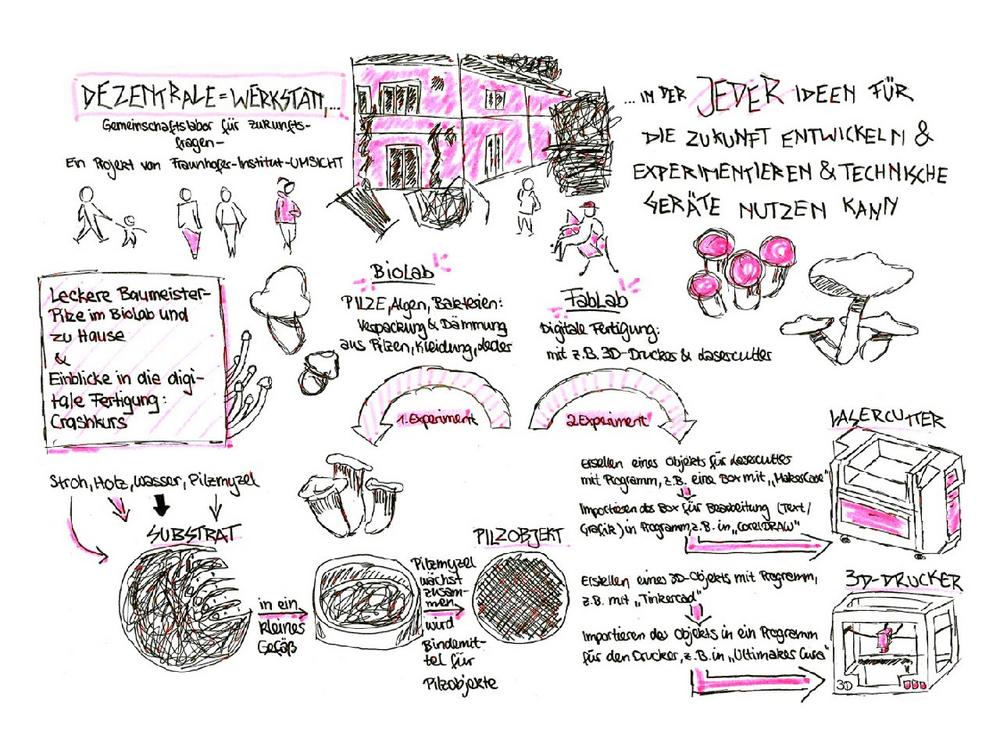 DEZENTRALE=WERKSTATT,...
Gemeinschaftslabor für zukunfts-
fragen-
Ein Projekt von Fraunhofer-Institut-UMSICHT
...IN DER JEDER IDEEN FÜR
DIE ZUKUNFT ENTWICKELN &
EXPERIMENTIEREN & TECHNISCHE
GERÄTE NUTZEN KANN
Leckere Baumeister-
Pilze im Biolab und
zu Hause
&
Einblicke in die digi-
tale Fertigung:
Crashkurs
BioLab
PILZE, Algen, Bakterien:
Verpackung & Dämmung
aus Pilzen, Kleidung, Leder
FabLab
Digitale Fertigung:
mit z.B. 3D-Drucker & Lasercutter
1. Experiment
2. Experiment
Stroh, Holz, Wasser, Pilzmyzel
SUBSTRAT
in ein
kleines
Gefäß
Pilzmyzel
wächst
zusam-
men,
wird
Bindemit-
tel für
Pilzobjekte
PILZOBJEKT
Erstellen eines Objekts für Lasercutter
mit Programm, z.B. eine Box mit „MakerCase"
Importieren der Box für Bearbeitung (Text/
Grafik) in Programm, z.B. in „CorelDRAW"
LASERCUTTER
Erstellen eines 3D-Objekts mit Programm,
z.B. mit „Tinkercad"
Importieren des Objekts in ein Programm
für den Drucker, z.B. in „Ultimaker Cura"
3D-DRUCKER
3D